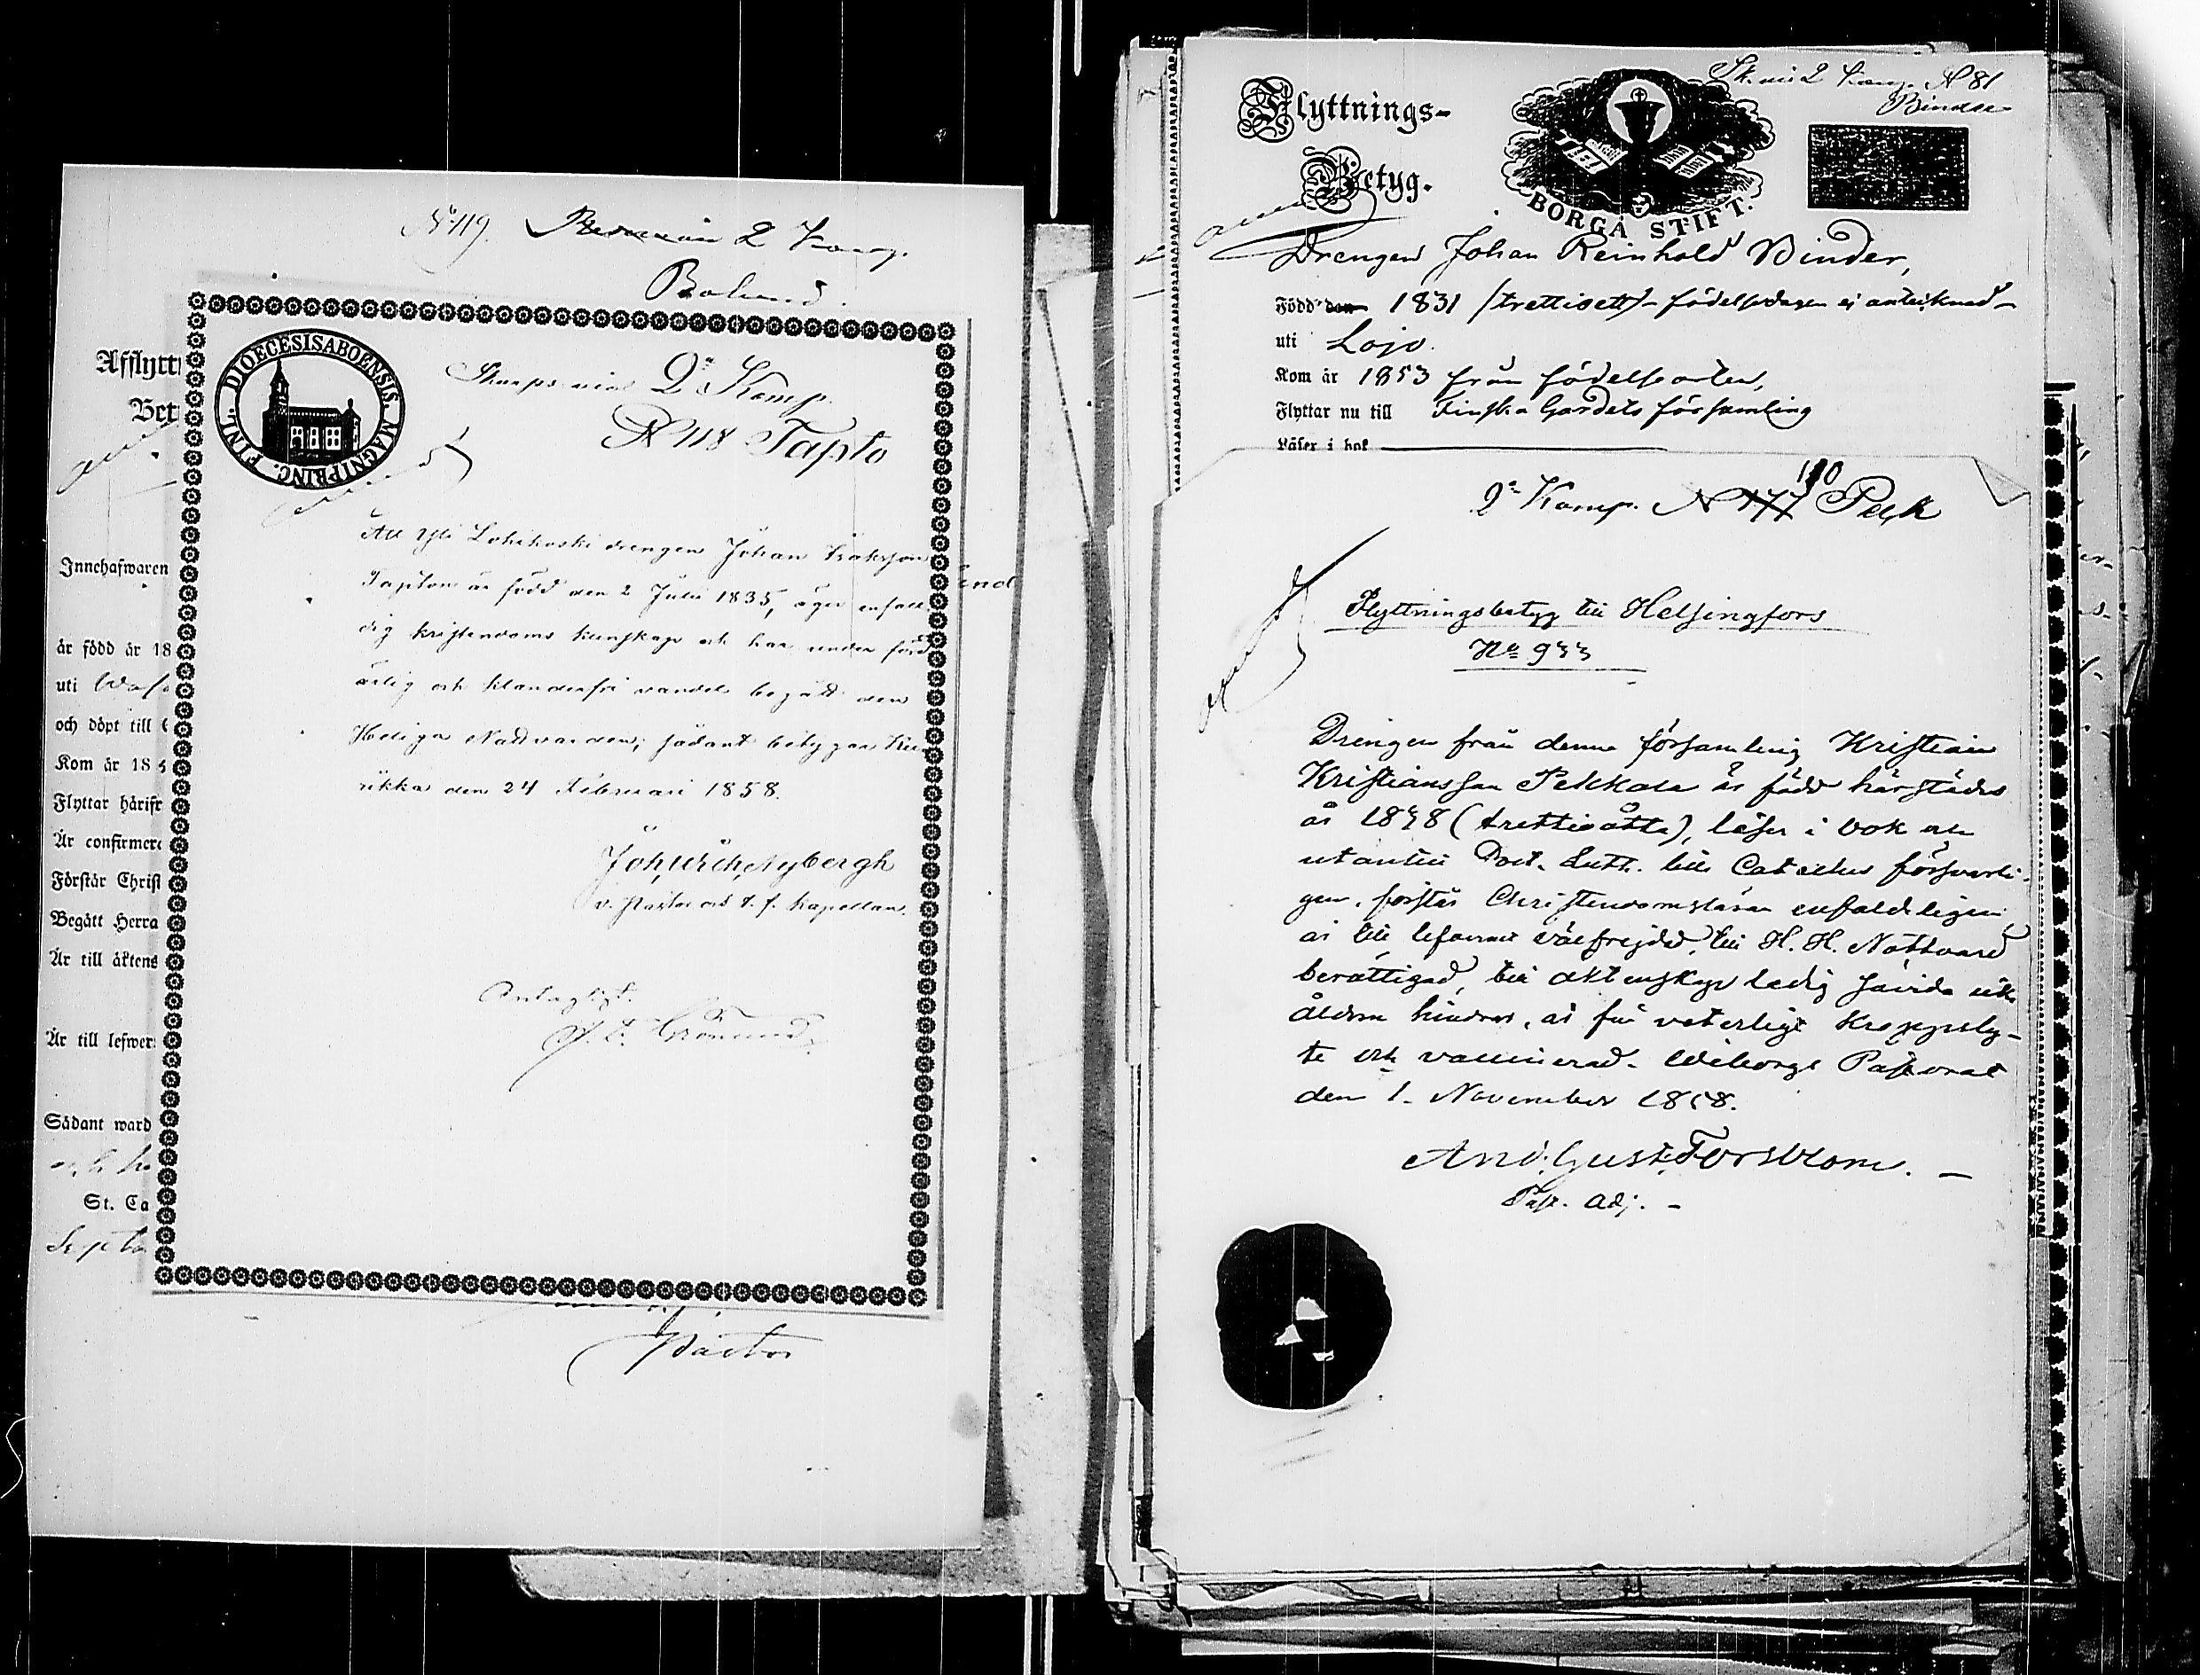 No 119. 2 Komp.
Bolund.
Afflytt
Bet
Innehafwaren
är född år 18
uti Wasa
och döpt till
Kom år 185
Flyttar härifr
Är confirmere
Förstår Christ
Begått Herra
Är till äktens
Är till lefwer
Sådant ward
St. Ca
Septe
Pastor
DIOECESIS ABOENSIS. MAGNI PRINC. FINL.
2a Komp.
N 118 Tapto
Att Yli Lohikoski drengen Johan Isaksson
Tapton är född den 2 Julii 1835, äger enfal
dig kristendoms kunskap och har under fördt
ärlig och klanderfri vandel begått den
Heliga Nattvarden; sådant betygar Kiu
rikka den 24 Februari 1858.
Joh. Ulrich Nybergh
v. Pastor och t. f. Kapellan.
Antaglig.
Flyttnings-
Betyg.
BORGÅ STIFT.
2 Komp. N 81
Binder
Drengen Johan Reinhold Binder,
Född den 1831 (trettioett) - födelsedagen ej antecknad -
uti Lojo.
Kom år 1853 från födelseorten,
Flyttar nu till Finska Gardets församling
Läser i bok
2a Komp. N 177 110 Pekk
Flyttningsbetyg till Helsingfors
No 933
Drengen från denna församling Kristian
Kristiansson Pekkala är född härstädes
år 1838 (trettioåtta), läser i bok och
utantill Doct. Luth. lilla Cateches försvarli-
gen, förstår Christendomsläran enfaldeligen
är till lefverne välfrejdad, till H. H. Nattvard
berättigad, till äktenskap ledig såvida icke
åldren hindrar, är fri veterligt kroppsly-
te och vaccinerad. Wiborgs Pastorat
den 1. November 1858.
And. Gust. Forsblom. -
Past. Adj. -